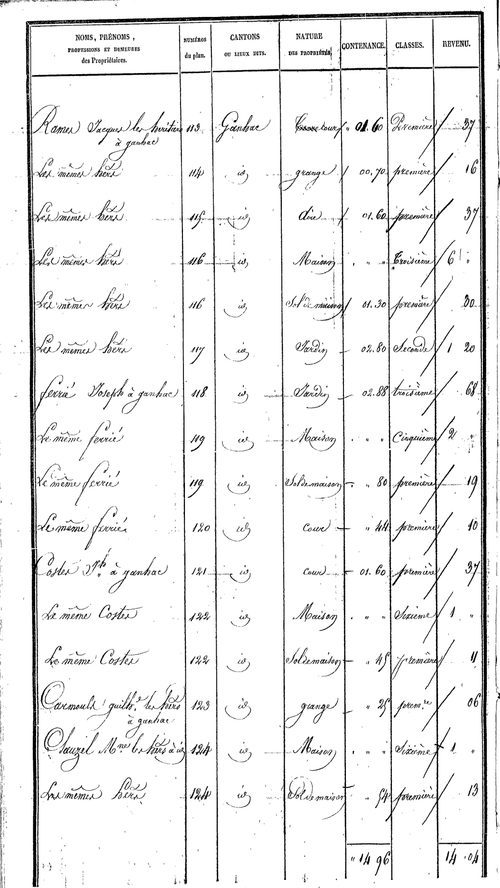 NOMS, PRÉNOMS, PROFESSIONS ET DEMEURES des Propriétaires. NUMÉROS du plan. CANTONS OU LIEUX DITS. NATURE DES PROPRIÉTÉS. CONTENANCE. CLASSES. REVENU.
Ramer Jacques les héritiers 113 Ganhac cour " 01.60 Première 37
à ganhac
Les mêmes hérs 114 id grange 00.70 première 16
Les mêmes hérs 115 id aire 01.60 première 37
Les mêmes hérs 116 id Maison " " Troisième 6 "
Les mêmes hérs 116 id Sol de maison 01.30 première 30
Les mêmes hérs 117 id Jardin 02.80 Seconde 1 20
ferrié Joseph à ganhac 118 id Jardin 02.88 troisième 68
Le même ferrié 119 id Maison " " Cinquième 2 "
Le même ferrié 119 id Sol de maison " 80 première 19
Le même ferrié 120 id cour " 44 première 10
Costes Jh à ganhac 121 id cour 01.60 première 37
Le même Costes 122 id Maison " " Sixième 1 "
Le même Costes 122 id Sol de maison " 45 première 11
guilh. les hérs 123 id grange " 25 premre 06
à ganhac
Clauzel Mne les hérs à id 124 id Maison " " Sixième 1 "
Les mêmes hérs 124 id Sol de maison " 54 première 13
" 14 96 14 04